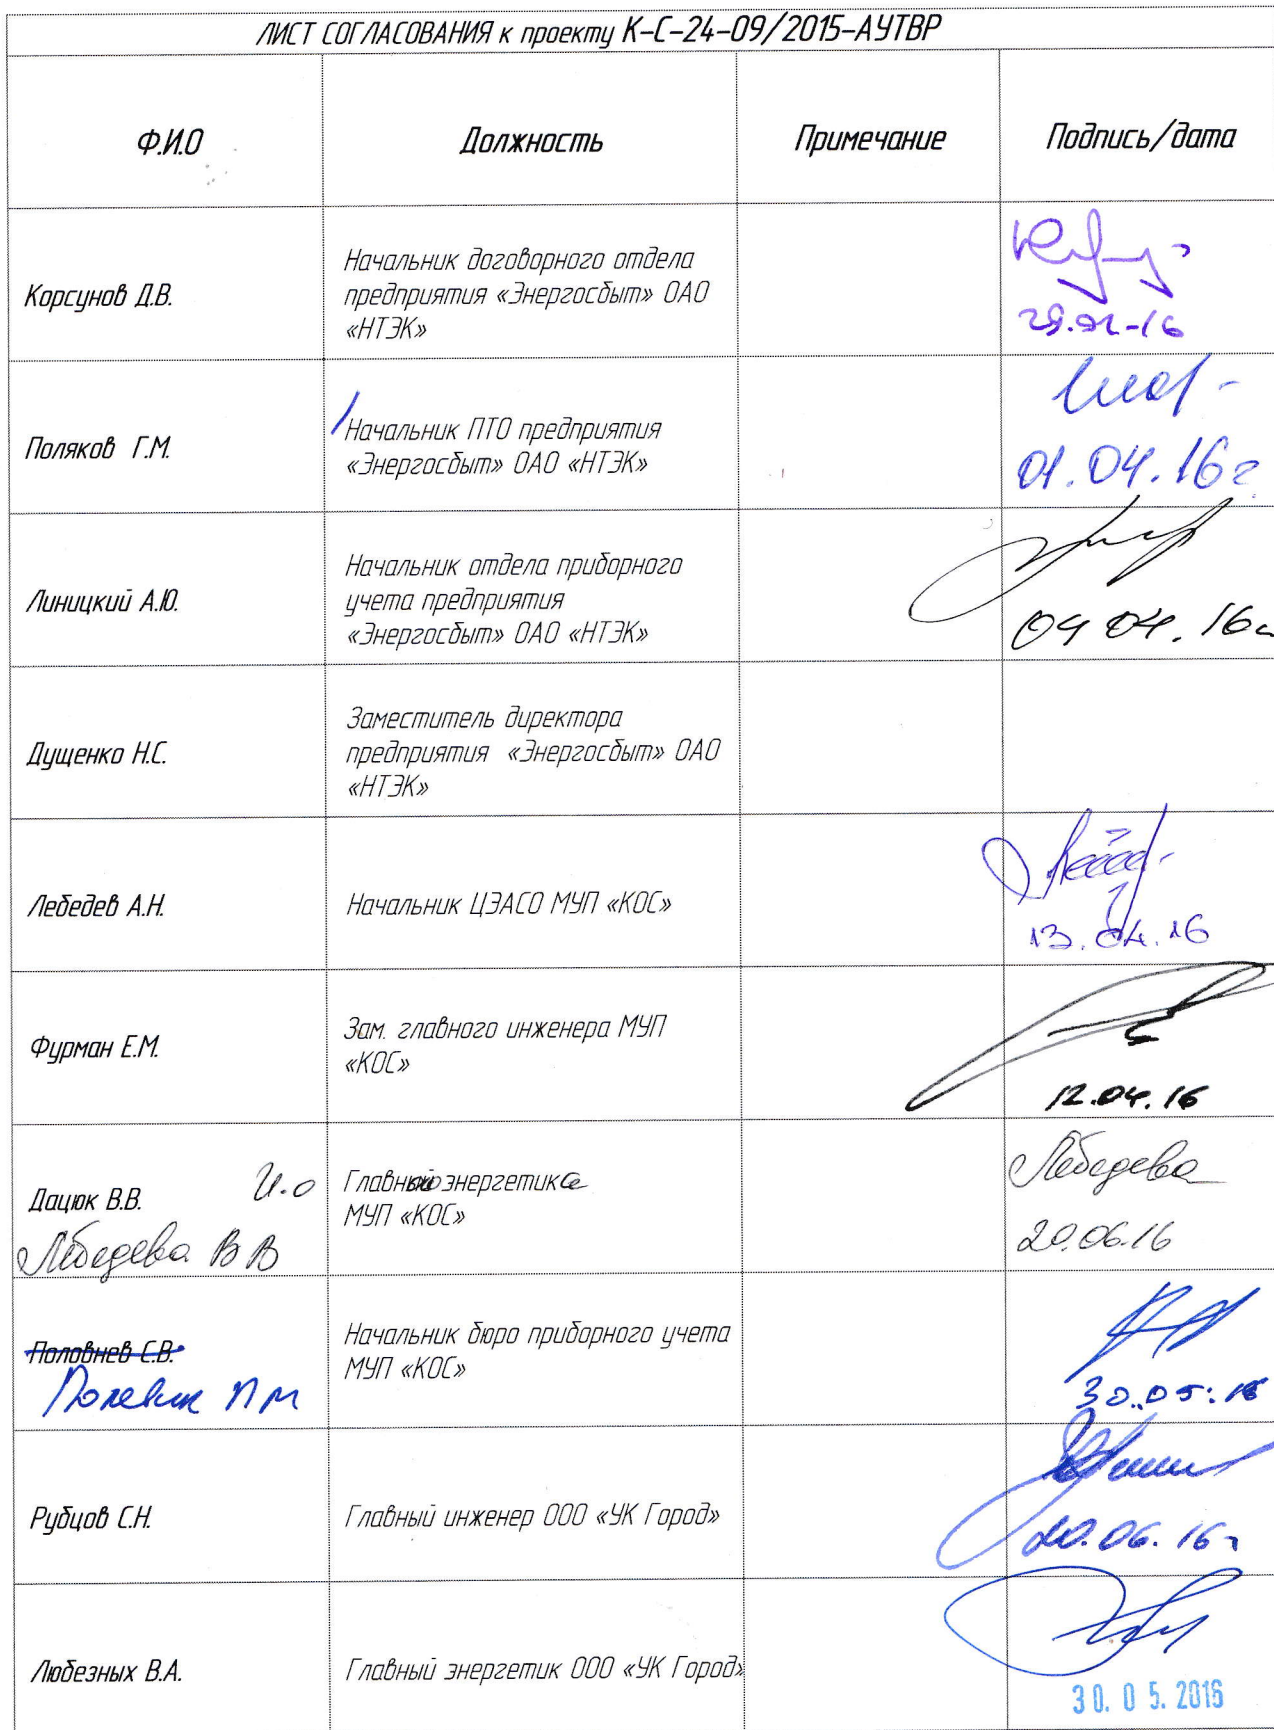 ЛИСТ СОГЛАСОВАНИЯ к проекту К-С-24-09/2015-АУТВР
Ф.И.О
Должность
Примечание
Подпись/дата
Корсунов Д.В.
Начальник договорного отдела
предприятия «Энергосбыт» ОАО
«НТЭК»
Поляков Г.М.
Начальник ПТО предприятия
«Энергосбыт» ОАО «НТЭК»
01.04.16г
Линицкий А.Ю.
Начальник отдела приборного
учета предприятия
«Энергосбыт» ОАО «НТЭК»
04 04. 16г
Дущенко Н.С.
Заместитель директора
предприятия «Энергосбыт» ОАО
«НТЭК»
Лебедев А.Н.
Начальник ЦЭАСО МУП «КОС»
13.04.16
Фурман Е.М.
Зам. главного инженера МУП
«КОС»
12.04.16
Дацюк В.В. И.о
Лебедева В В
Главного энергетика
МУП «КОС»
Лебедева
20.06.16
Половнев С.В.
Начальник бюро приборного учета
МУП «КОС»
30.05.16
Рубцов С.Н.
Главный инженер ООО «УК Город»
20.06.16г
Любезных В.А.
Главный энергетик ООО «УК Город»
30. 05. 2016